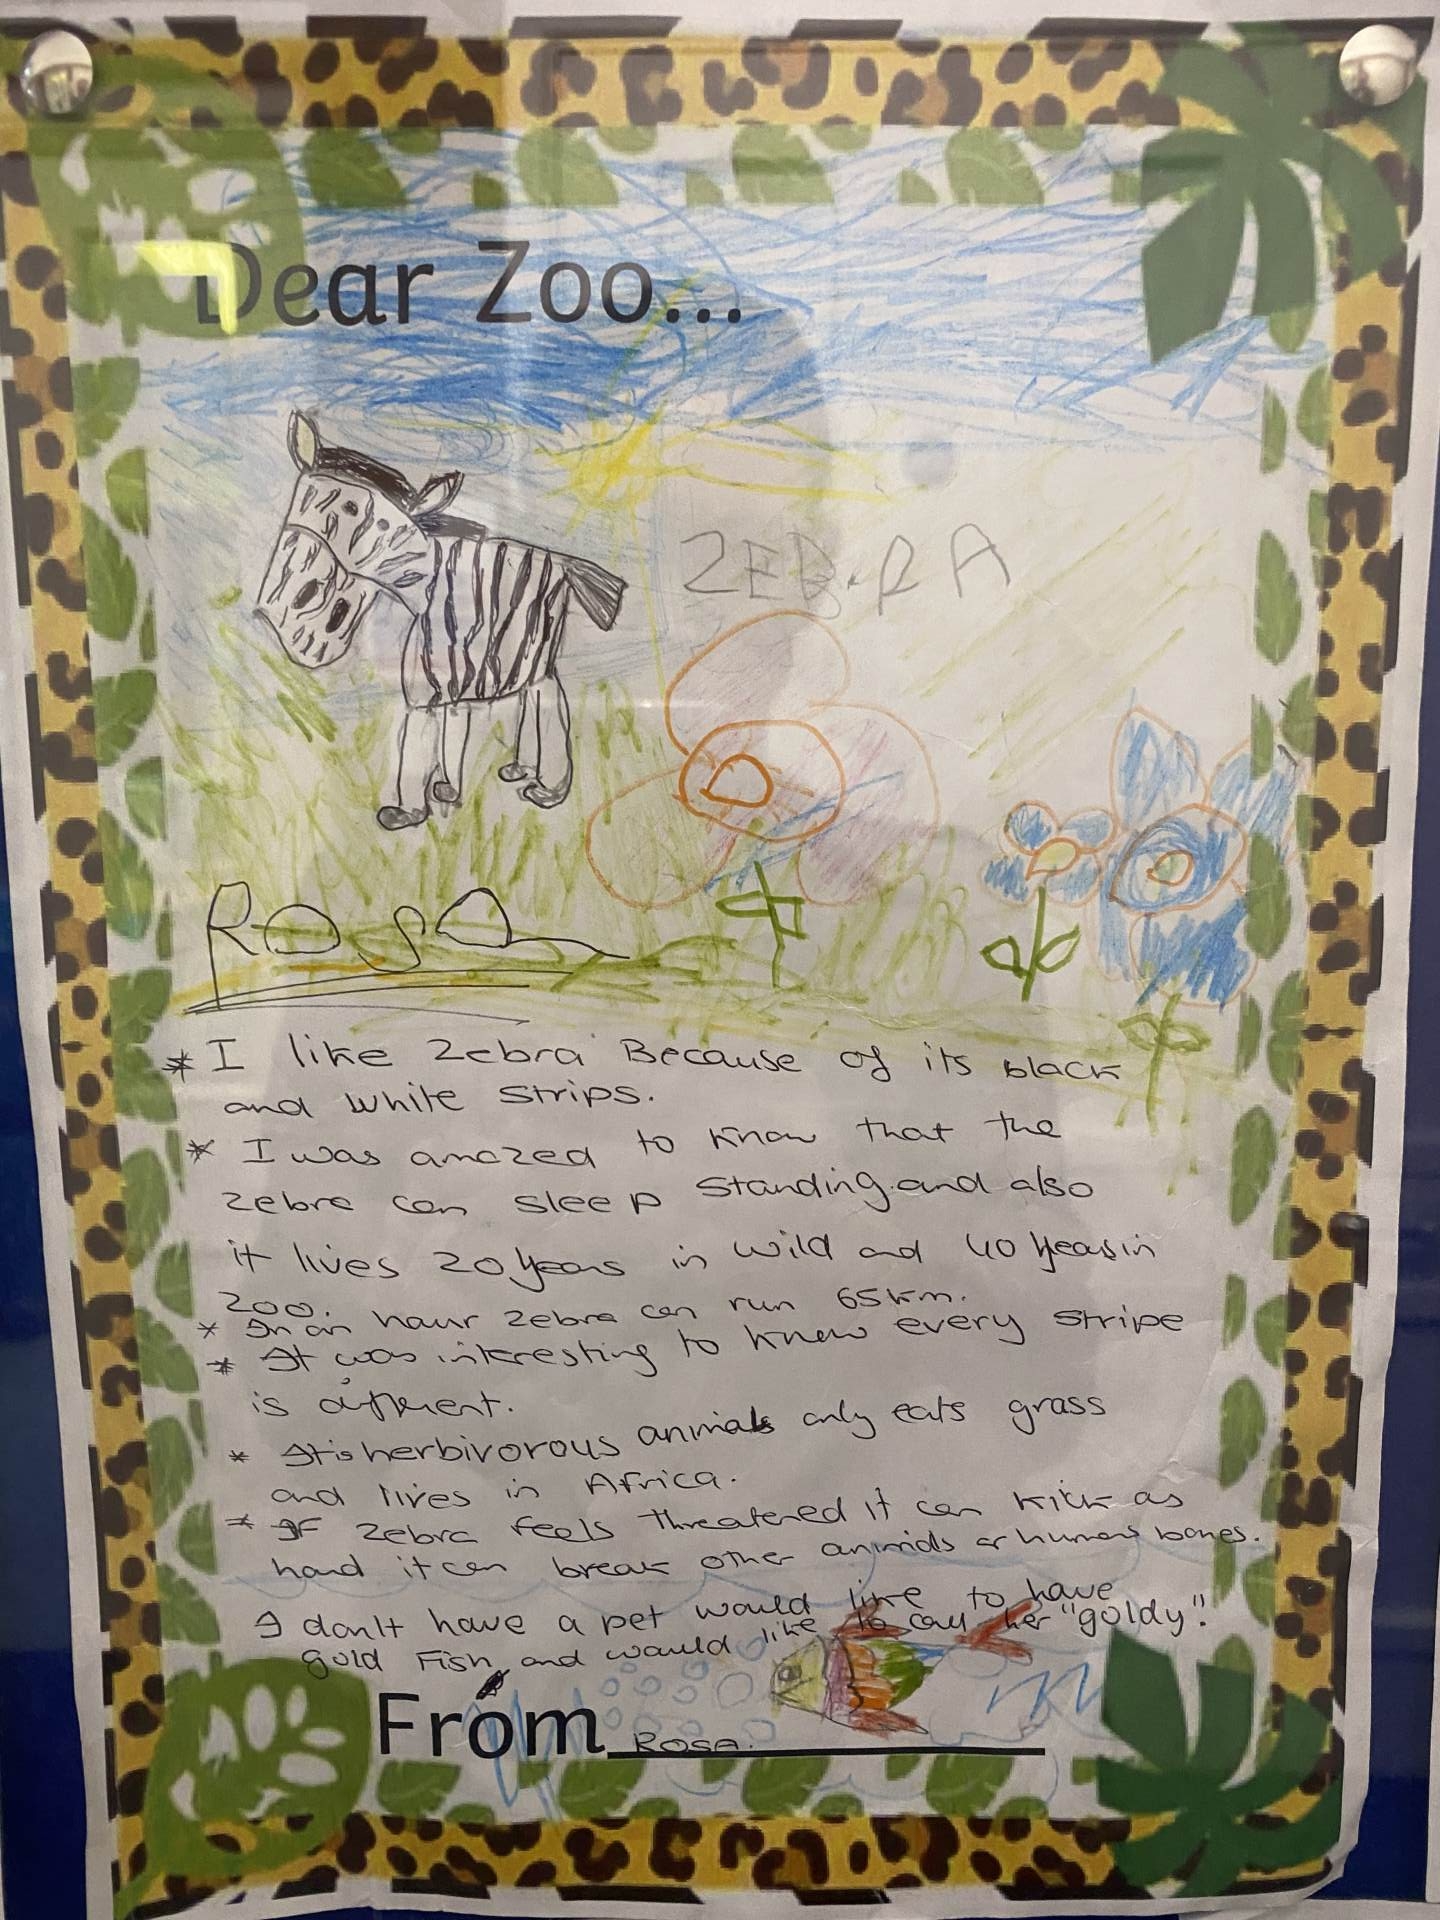 Dear Zoo...
ZEBRA
Rosa
* I like Zebra Because of its black
and white strips.
* I was amazed to know that the
zebra can sleep standing and also
it lives 20 years in wild and 40 years in
zoo.
* In an hour zebra can run 65km.
* It was interesting to know every stripe
is different.
* It is herbivorous animals only eats grass
and lives in Africa.
* If zebra feels threatened it can kick as
hard it can break other animals or humans bones.
I don't have a pet would like to have
gold fish and would like to call her "goldy".
From ROSA.